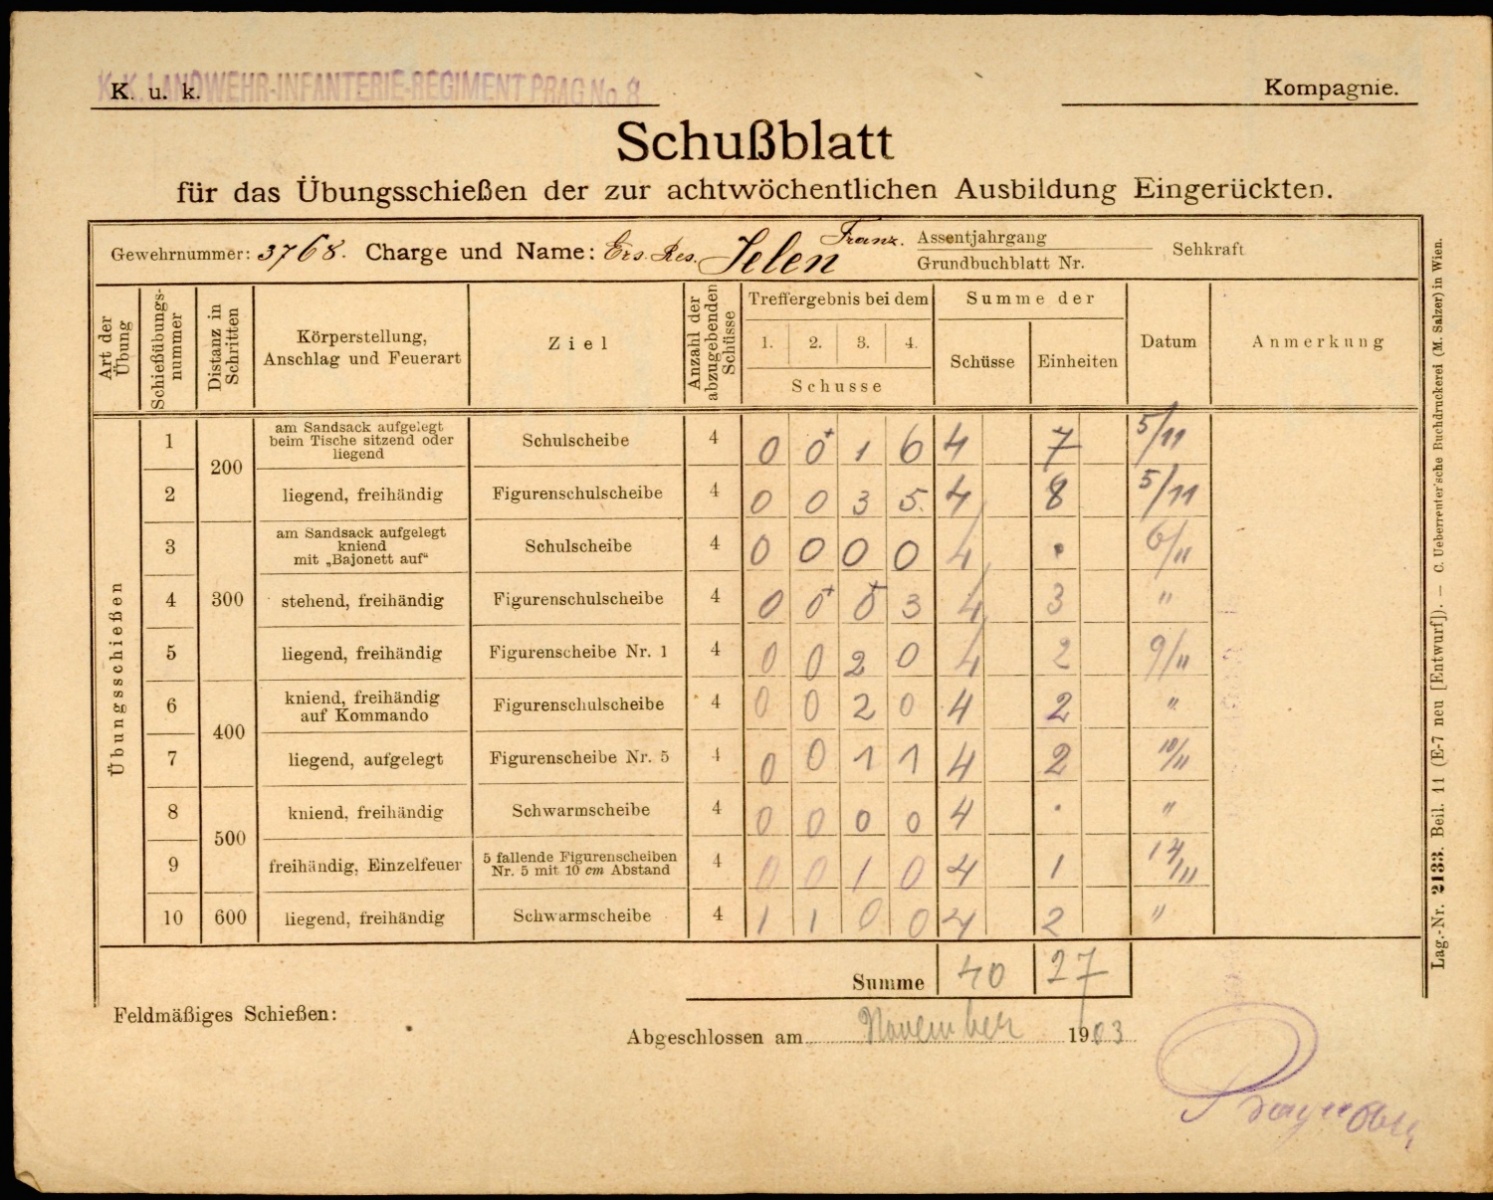 K. K. LANDWEHR-INFANTERIE-REGIMENT PRAG No. 8
K. u. k. Kompagnie.
Schußblatt
für das Übungsschießen der zur achtwöchentlichen Ausbildung Eingerückten.
Gewehrnummer: 3768. Charge und Name: Ers. Res. Jelen Franz. Assentjahrgang Sehkraft
Grundbuchblatt Nr.
Art der Übung
Schießübungs-nummer
Distanz in Schritten
Körperstellung,
Anschlag und Feuerart
Ziel
Anzahl der abzugebenden Schüsse
Treffergebnis bei dem
1. 2. 3. 4.
Schusse
Summe der
Schüsse Einheiten
Datum
Anmerkung
Übungsschießen
200
300
400
500
600
1 am Sandsack aufgelegt beim Tische sitzend oder liegend Schulscheibe 4 0 0+ 1 6 4 7 5/11
2 liegend, freihändig Figurenschulscheibe 4 0 0 3 5. 4 8 5/11
3 am Sandsack aufgelegt kniend mit „Bajonett auf“ Schulscheibe 4 0 0 0 0 4 • 6/11
4 stehend, freihändig Figurenschulscheibe 4 0 0+ 0+ 3 4 3 "
5 liegend, freihändig Figurenscheibe Nr. 1 4 0 0 2 0 4 2 9/11
6 kniend, freihändig auf Kommando Figurenschulscheibe 4 0 0 2 0 4 2 "
7 liegend, aufgelegt Figurenscheibe Nr. 5 4 0 0 1 1 4 2 10/11
8 kniend, freihändig Schwarmscheibe 4 0 0 0 0 4 · "
9 freihändig, Einzelfeuer 5 fallende Figurenscheiben Nr. 5 mit 10 cm Abstand 4 0 0 1 0 4 1 14/11
10 liegend, freihändig Schwarmscheibe 4 1 1 0 0 4 2 "
Summe 40 27
Feldmäßiges Schießen:
Abgeschlossen am November 1903
Lag.-Nr. 2133. Beil. 11 (E-7 neu [Entwurf]). — C. Ueberreuter'sche Buchdruckerei (M. Salzer) in Wien.